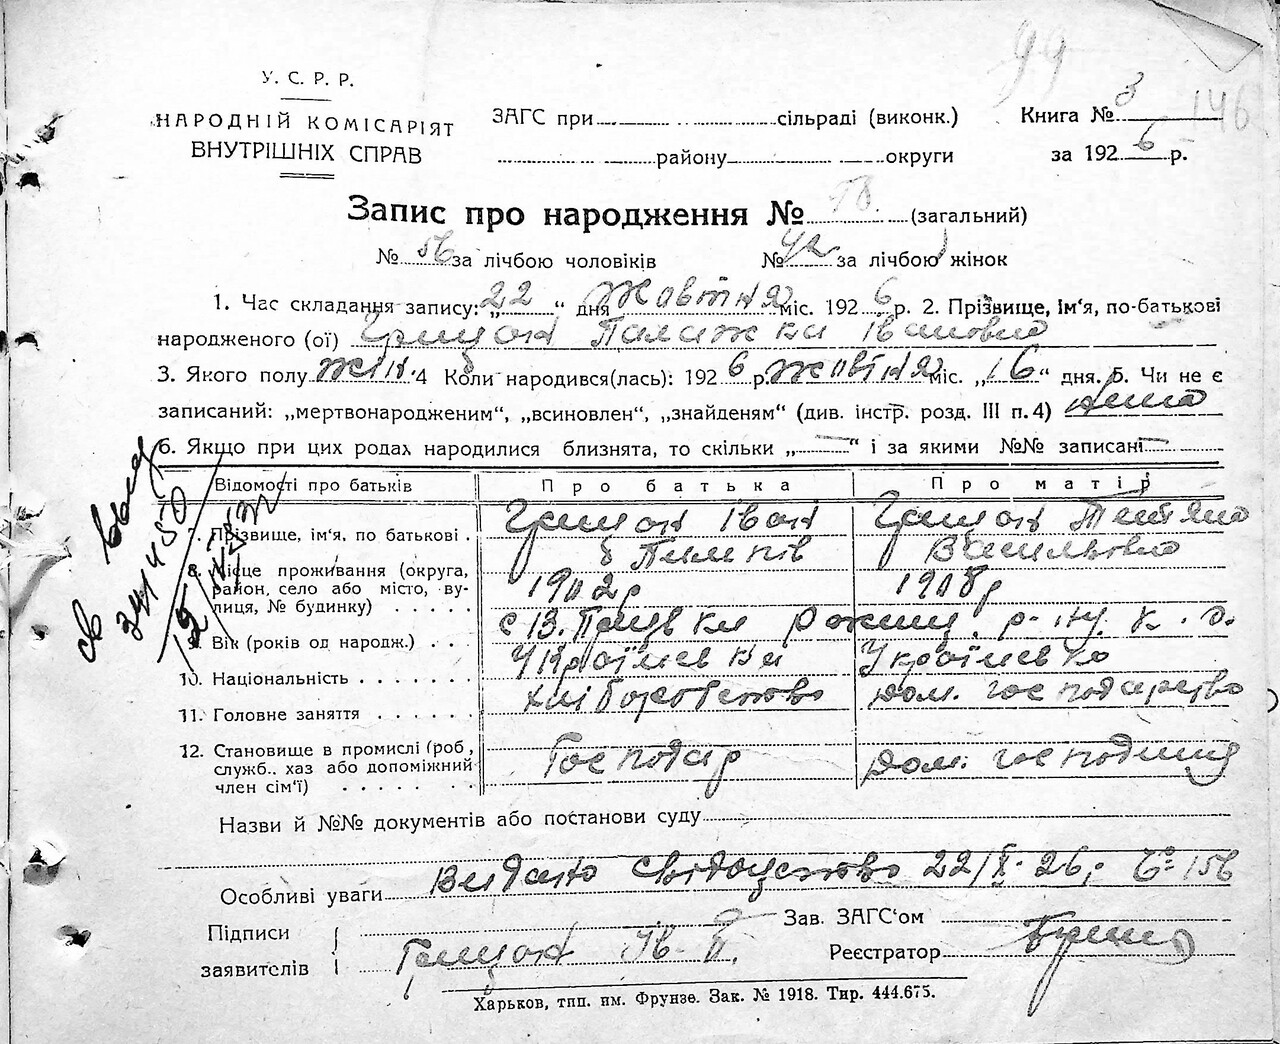 99
У. С. Р. Р.
НАРОДНІЙ КОМІСАРІЯТ
ВНУТРІШНІХ СПРАВ
ЗАГС при сільраді (виконк.)
району округи
Книга № 3
146
за 1926 р.
Запис про народження № (загальний)
№ 56 за лічбою чоловіків № 42 за лічбою жінок
1. Час складання запису: „22“ дня Жовтня міс. 1926 р. 2. Прізвище, ім'я, по-батькові
народженого (ої) Грицон Палажка Івановна
3. Якого полу жін. 4 Коли народився(лась): 1926 р. Жовтня міс. „16“ дня. 5. Чи не є
записаний: „мертвонародженим“, „всиновлен“, „знайденям“ (див. інстр. розд. III п. 4)
6. Якщо при цих родах народилися близнята, то скільки „—“ і за якими №№ записані —
Відомості про батьків Про батька Про матір
7. Прізвище, ім'я, по батькові . Грицон Іван Грицон Тетяна
Пилипів Васильовна
8. Місце проживання (округа,
район, село або місто, ву-
лиця, № будинку) . . . . . 1902р 1908р
с
9. Вік (років од народж.) . . .
10. Національність . . . . . . . Україневки Україневка
11. Головне заняття . . . . . . Хліборобство дом. господарство
12. Становище в промислі (роб,
служб., хаз або допоміжний
член сім'ї) . . . . . . Господар дом. господиня
св выд
Назви й №№ документів або постанови суду
Особливі уваги Видано свідоцтво 22/X. 26р № 156
Підписи
заявителів Грицон Ів. П.
Зав. ЗАГС'ом
Реєстратор
Харьков, тип. им. Фрунзе. Зак. № 1918. Тир. 444.675.